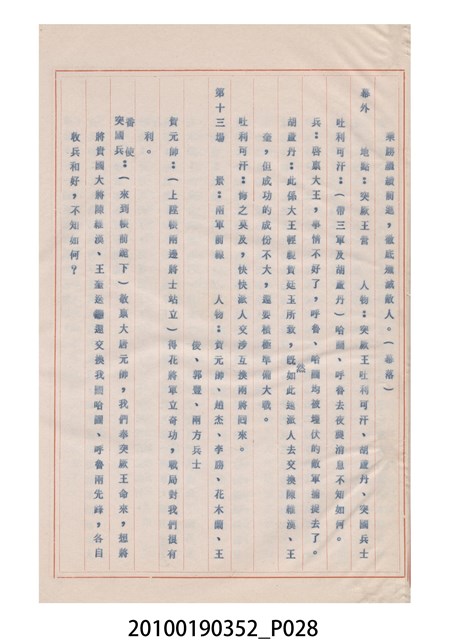 乘勝繼續前進，徹底殲滅敵人。（幕落）
幕外　地點：突厥王宮　人物：突厥王吐利可汗、胡盧丹、突國兵士
吐利可汗：（帶三軍及胡盧丹）哈圖、呼魯去後，消息不知如何。
兵：啓稟大王，事情不好了，呼魯、哈圖均被埋伏的敵軍捕捉去了。
胡盧丹：此係大王輕視賀廷玉所致，既然如此速派人去交換陳維漢、王
奎，但成功的成份不大，還要積極準備大戰。
吐利可汗：悔之莫及，快快派人交涉互換兩將回來。
第十三場　景：兩軍前線　人物：賀元帥、趙杰、李勝、花木蘭、王
俊、郭豐、兩方兵士
賀元帥：（上陞帳兩邊將士站立）得花將軍立奇功，戰局對我們很有
利。
番使
突國兵：（來到帳前跪下）敬稟大唐元帥，我們奉突厥王命來，想將
將貴國大將陳維漢、王奎送還交換我國哈圖、呼魯兩先鋒，各自
收兵和好，不知如何？
20100190352_P028